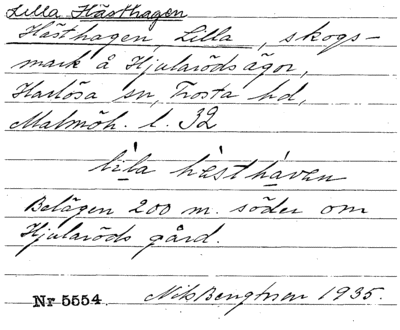 Lilla Hästhagen
Hästhagen, Lilla, skogs-
mark å Hjularöds ägor,
Harlösa sn, Frosta hd,
Malmöh. l. 32
lìla hèsthàven
Belägen 200 m. söder om
Hjularöds gård.
Nr 5554 Nils Bengtsson 1935.